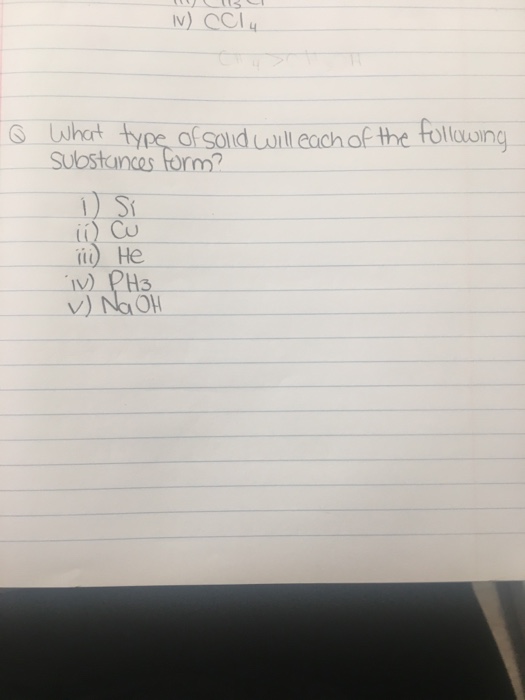 iv) CCl4
Q What type of solid will each of the following
substances form?
i) Si
ii) Cu
iii) He
iv) PH3
v) NaOH